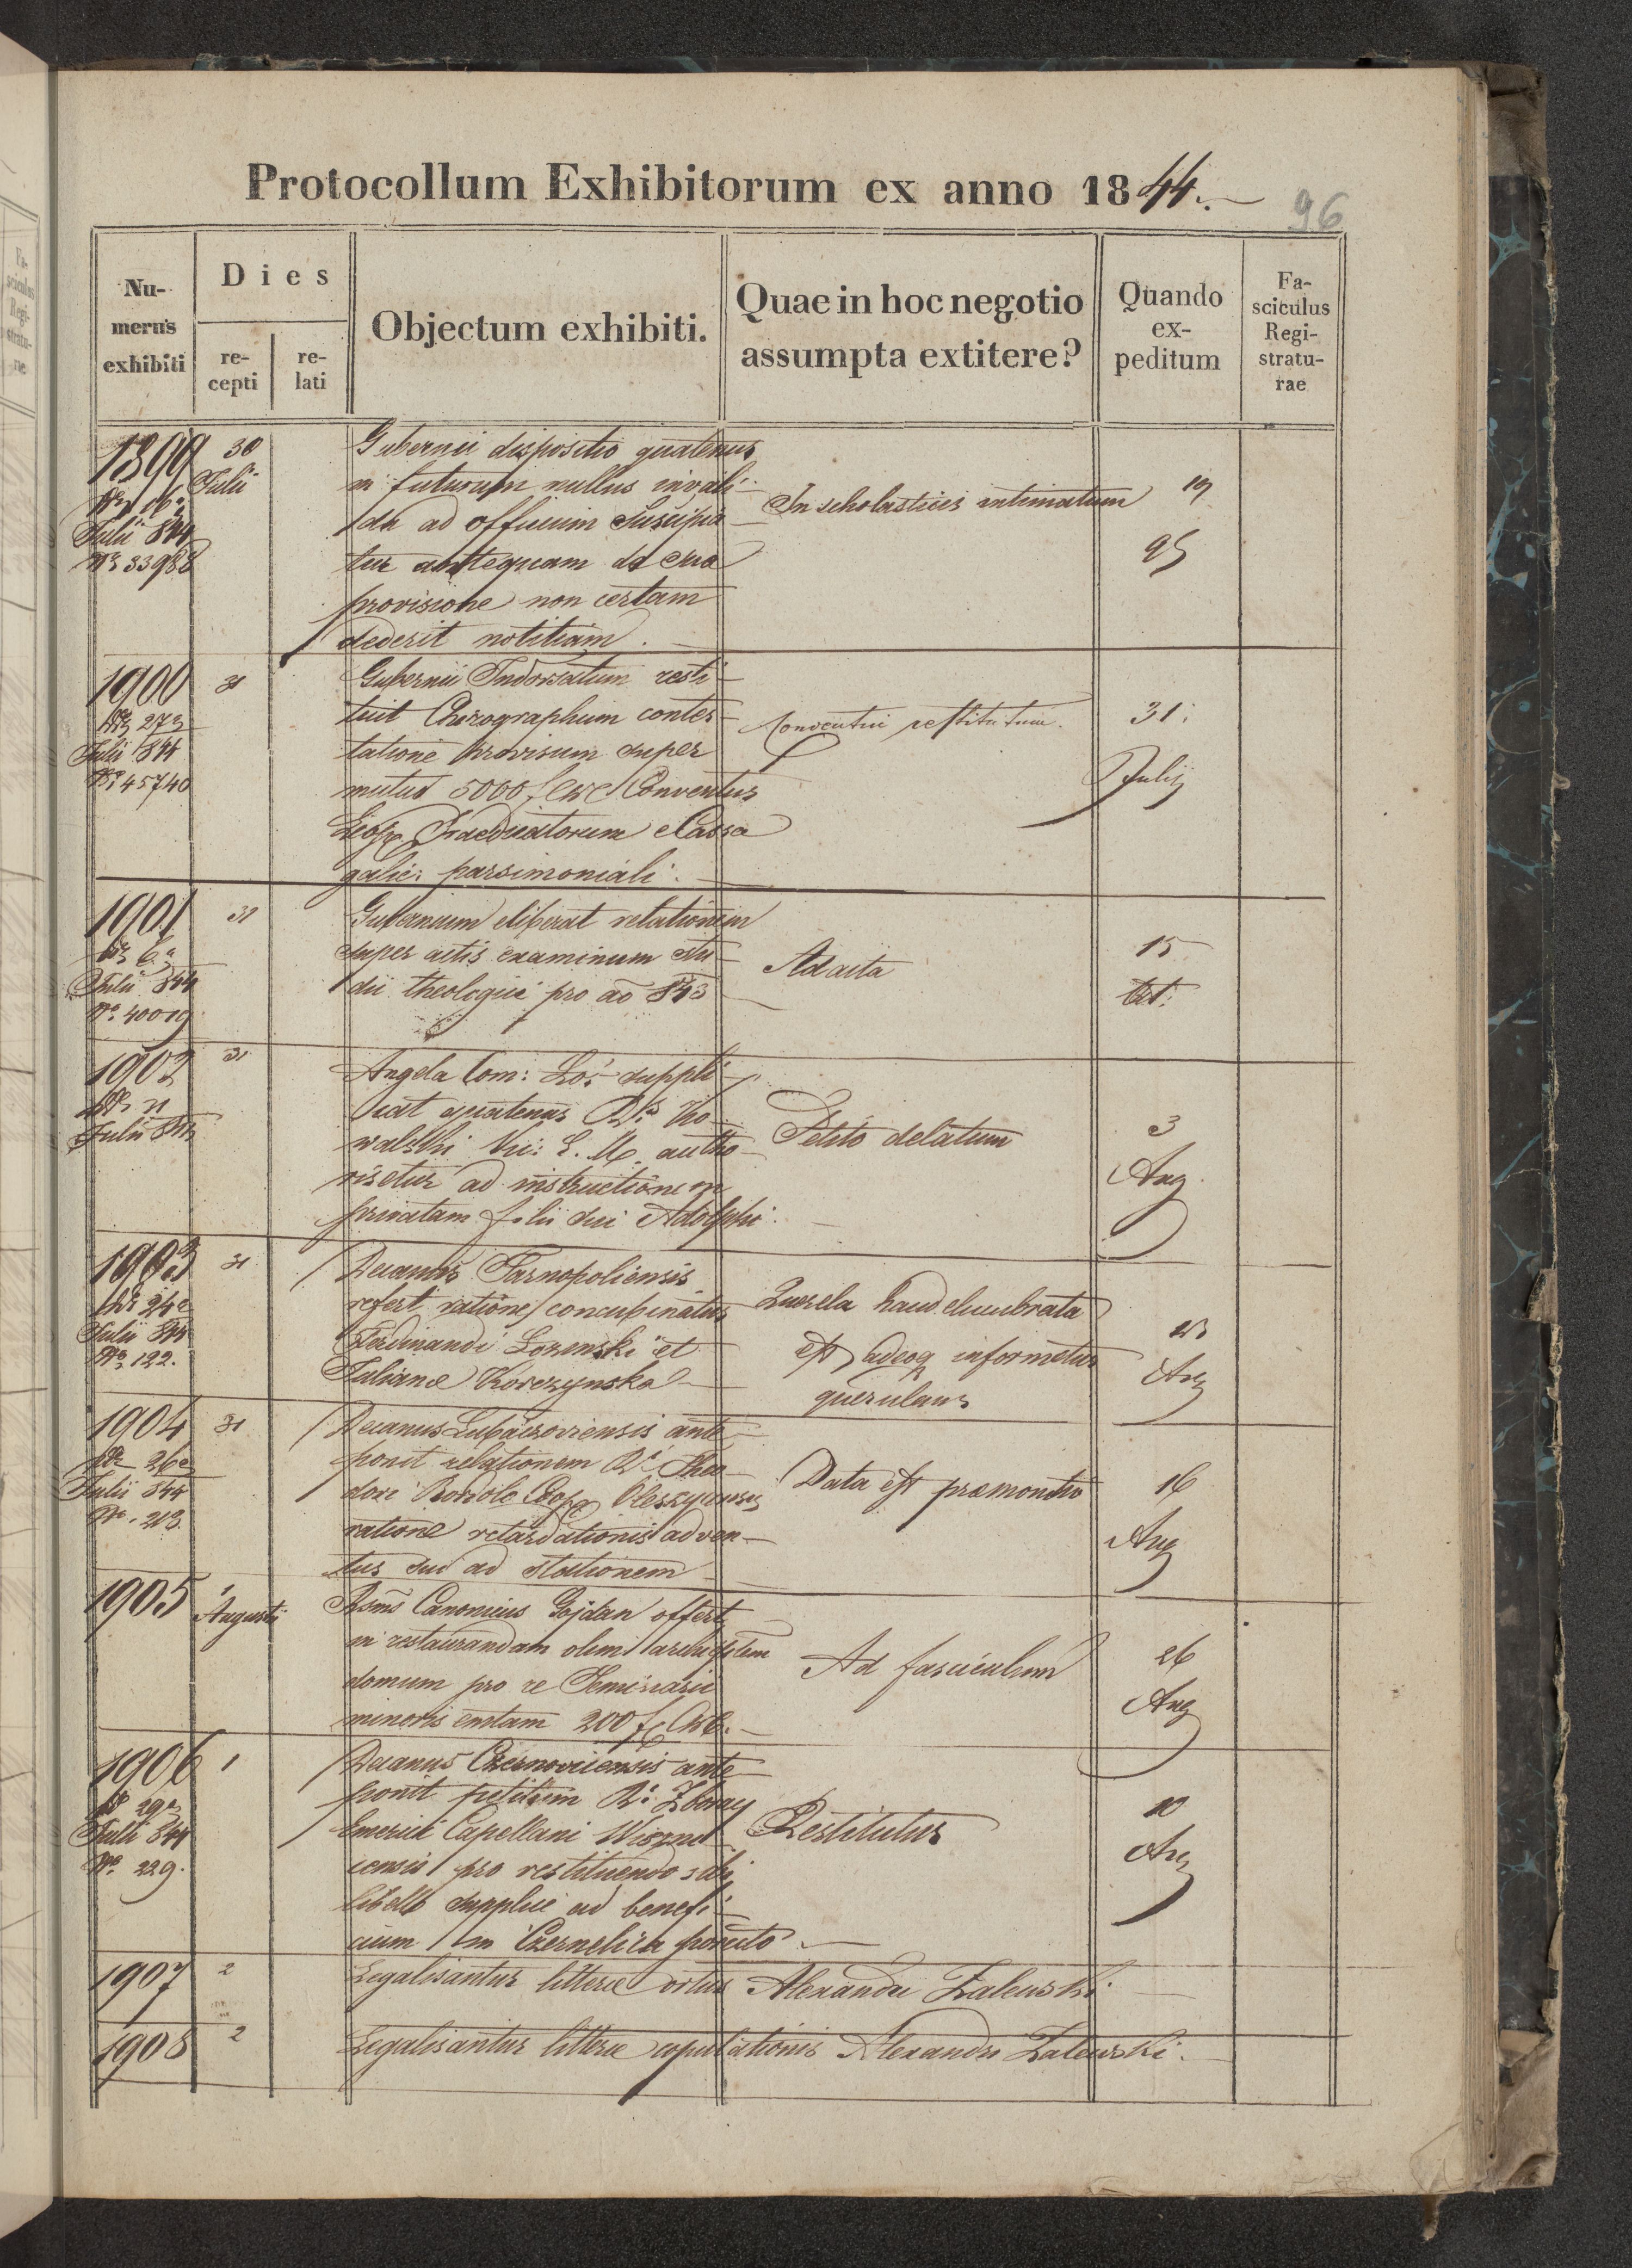 Protocollum Exhibitorum ex anno 1844.
96
Nu-
merus
exhibiti
Dies
re-
cepti
re-
lati
Objectum exhibiti.
Quae in hoc negotio
assumpta extitere?
Quando
ex-
peditum
Fa-
sciculus
Regi-
stratu-
rae
1899
30
Julii
Julii 844
Nr 33988
Gubernii dispositio quatenus
in futurum nullus invali-
da ad officium suscipia-
tur antequam de sua
provisione non certam
dederit notitiam.
In scholasticis intimatum
19
1900
31
27a
Julii 844
Nr 45740
Gubernii Indorsatum resti-
tuit Chirographum contes-
tatione provisum super
mutuo 5000 f CMC Conventus
Leop. Praedicatorum e Cassa
galic: parsimoniali.
Conventui restitutum.
31:
Julij
1901
31
6a
Julii 844
Nr. 40019
Gubernium eliberat relationem
super actis examinum stu-
dii theologici pro ao 843
Ad acta
15
1902
31
Julii 844
Angela Com: Łoś suppli-
cat quatenus Rds Ko-
walski Vic: L. M. autho-
risetur ad instructionem
privatam filii sui Adolphi.
Petito delatum
3
Aug
1903
31
24a
Julii 844
Nr. 122.
Decanus Tarnopoliensis
refert ratione concubinatus
Ferdinandi Lozenski et
Juliana Korczynska
Querela haud elucubrata
est adeoq informetur
querulans
Aug
1904
31
26a
Julii 844
Nr. 213
Decanus Lubaczoviensis ante-
ponit relationem Rdi Theo-
dori Coop. Oleszycensis
ratione retardationis adven-
tus sui ad stationem
Data est praemonitio
16
Aug
1905
1
Augusti
Rsms Canonicus Gojdan offert
in restaurandam olim
domum pro re Seminarii
minoris emtam 200 f CMC.
Ad fasciculum
26
Aug
1906
1
29a
Julii 844
Nr. 229.
Decanus Czernoviciensis ante-
ponit petitum Rdi Zboray
Emerici Capellani Wizni-
censis pro restituendo sibi
libello supplici ad benefi-
cium in Czernelica porrecto
Restitutus
10
Aug
1907
2
Legalisantur litterae ortus Alexandri Zalewski.
1908
2
Legalisantur litterae copulationis Alexandri Zalewski.